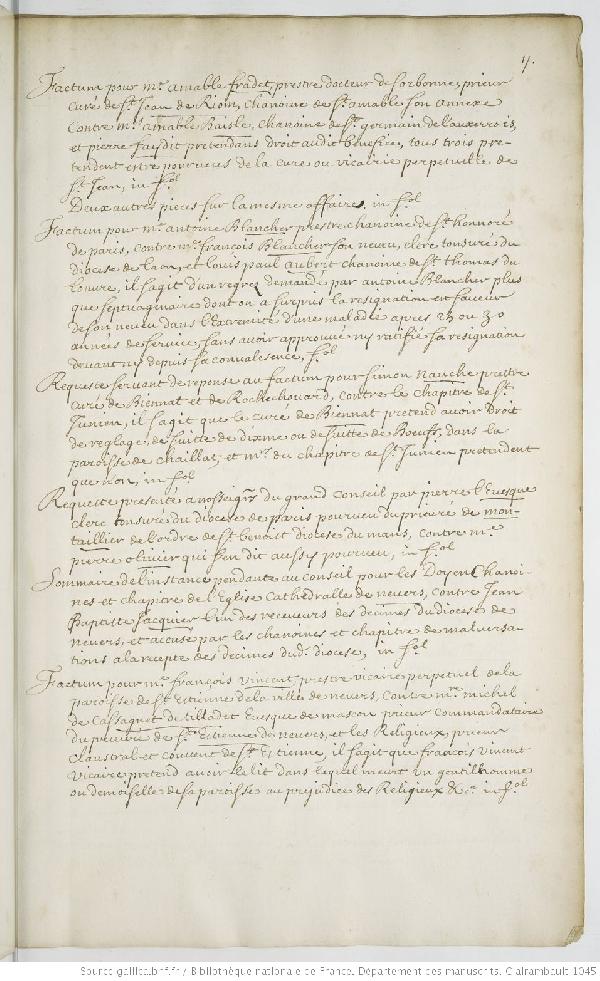 4.
Factum pour mr. amable fradet, prestre docteur de sorbonne, prieur
curé de st. Jean de Riom, chanoine de st. amable son annexe
contre mrs. amable Baisle, chanoine de st. germain de l'auxerrois,
et pierre faydit pretendans droit audit benefice, tous trois pre-
tendent estre pourveus de la cure ou vicairie perpetuelle de
st. Jean, in fol
Deux autres pieces sur la mesme affaires, in fol
Factum pour mr. antoine Blancher prestre chanoine de st. honnoré
de paris, contre mr. françois Blancher son neveu, clerc tonsuré du
diocese de laon, et louis paul aubert chanoine de st. thomas du
louvre, il s'agit d'un regres demandé par antoine Blancher plus
que septuagenaire dont on a surpris la resignation en faveur
de son neveu dans l'extremité d'une maladie apres 25 ou 30
années de service, sans avoir approuvé ny ratifié sa resignation
devant ny depuis sa convalesence, fol
Requeste servant de reponse au factum pour simon nauche prestre
curé de Biennat et de Rochechouard, contre le chapitre de st.
Junien, il s'agit que le curé de Biennat pretend avoir droit
de reglage, de suitte de dixme ou de suitte de Boeufs, dans la
paroisse de chaillat, et mrs. du chapitre de st. Junien pretendent
que non, in fol
Requeste presenté a nosseigrs. du grand Conseil par pierre l'Evesque
clerc tonsuré du diocese de paris pourveu du prieuré de mon-
taillier de l'ordre de st. benoist diocese du mans, contre me.
pierre olivier qui s'en dit aussy pourveu, in fol
Sommaire de l'instance pendante au conseil pour les Doyen Chanoi-
nes et chapitre de l'Eglise Cathedralle de nevers, contre Jean
Baptiste Jacquier l'un des receveurs des decimes du diocese de
nevers, et accusé par les chanoines et chapitre de malversa-
tions a la recepte des decimes dud. diocese, in fol
Factum pour mr. françois vincent prestre vicaire perpetuel de la
paroisse de st. Etienne de la ville de nevers, contre mre. michel
de Cassagnet de tilladet Evesque de mascon prieur commandataire
du prieuré de st. Estienne de nevers, et les Religieux, prieur
claustral et couvent de st. Estienne, il s'agit que françois vincent
vicaire pretend avoir le lit dans lequel meurt un gentilhomme
ou demoiselle de sa paroisse au prejudice des Religieux &c. in fol
Source gallica.bnf.fr / Bibliothèque nationale de France. Département des manuscrits. Clairambault 1045